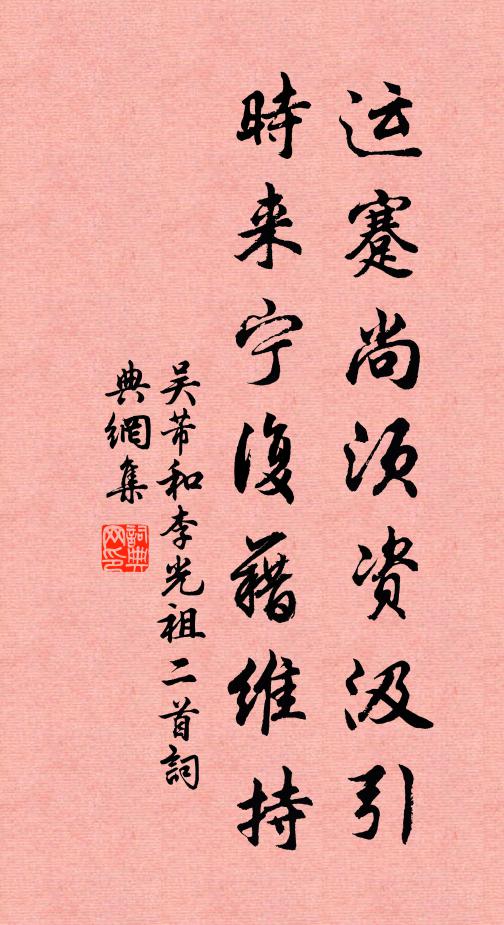 运蹇尚须资汲引
時来宁復藉维持
吴芾和李光祖二首詞
典網集
詞典
网印